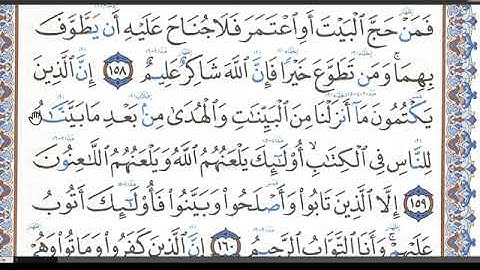 فَمَنْ حَجَّ ٱلْبَيْتَ أَوِ ٱعْتَمَرَ فَلَا جُنَاحَ عَلَيْهِ أَن يَطَّوَّفَ
بِهِمَا ۚ وَمَن تَطَوَّعَ خَيْرًا فَإِنَّ ٱللَّهَ شَاكِرٌ عَلِيمٌ ١٥٨ إِنَّ ٱلَّذِينَ
يَكْتُمُونَ مَآ أَنزَلْنَا مِنَ ٱلْبَيِّنَٰتِ وَٱلْهُدَىٰ مِنۢ بَعْدِ مَا بَيَّنَّٰهُ
لِلنَّاسِ فِى ٱلْكِتَٰبِ ۙ أُو۟لَٰٓئِكَ يَلْعَنُهُمُ ٱللَّهُ وَيَلْعَنُهُمُ ٱللَّٰعِنُونَ
١٥٩ إِلَّا ٱلَّذِينَ تَابُوا۟ وَأَصْلَحُوا۟ وَبَيَّنُوا۟ فَأُو۟لَٰٓئِكَ أَتُوبُ
عَلَيْهِمْ ۚ وَأَنَا ٱلتَّوَّابُ ٱلرَّحِيمُ ١٦٠ إِنَّ ٱلَّذِينَ كَفَرُوا۟ وَمَاتُوا۟ وَهُمْ